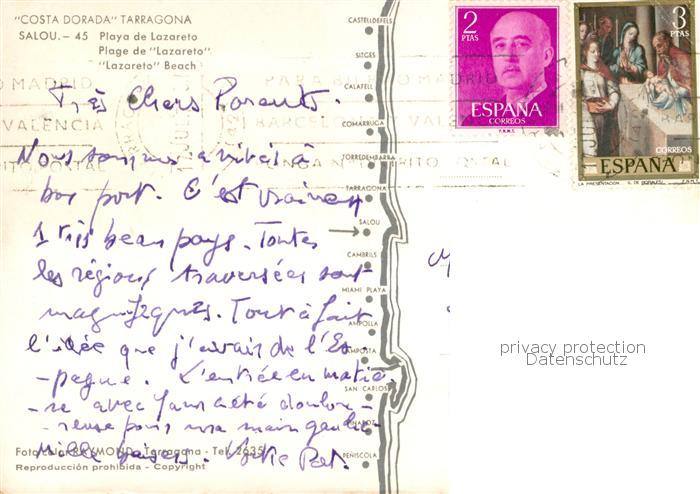 "COSTA DORADA" TARRAGONA
SALOU. - 45 Playa de Lazareto
Plage de "Lazareto"
"Lazareto" Beach
CASTELLDEFELS
SITGES
CALAFELL
COMARRUGA
TORREDEMBARRA
TARRAGONA
SALOU
CAMBRILS
MIAMI PLAYA
AMPOLLA
AMPOSTA
SAN CARLOS
VINAROZ
PEÑISCOLA
2
PTAS
ESPAÑA
CORREOS
F.N.M.T.
3
PTAS
CORREOS
ESPAÑA
LA PRESENTACION
MADRID
VALENCIA
Très Chers Parents.
Nous sommes arrivés à
bon port. C'est vraiment
1 très beau pays. Toutes
les régions traversées sont
magnifiques. Tout à fait
l'idée que j'avais de l'Es-
-pagne. L'entrée en matiè-
-re avec a été doulou-
-reuse pour ma main gauche
Mille baisers. Votre Pat.
Foto color RAYMOND - Tarragona - Tel. 2635
Reproducción prohibida - Copyright
privacy protection
Datenschutz